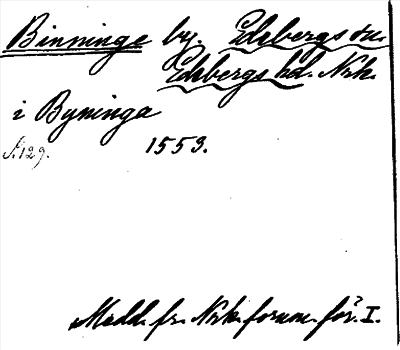 Binninge by. Edsbergs sn.
Edsbergs hd. Nrk.
i Byninga
S. 129. 1553.
Medd. fr. Nrk. fornm. för. I.